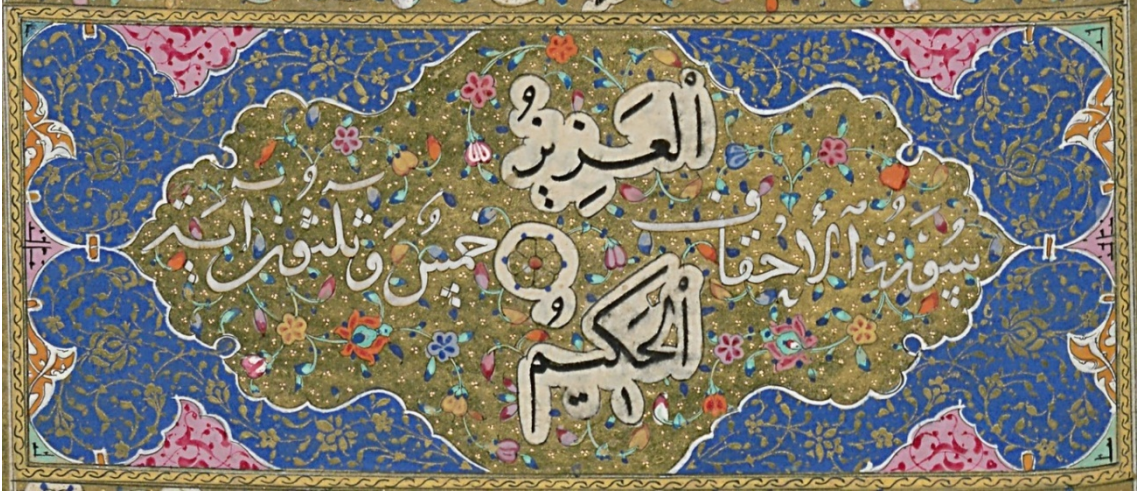 اَلعَزِيزُ
سُورَةُ الأَحْقَاف خَمسُ وَثلثون ايَة
اَلحَكِيمُ